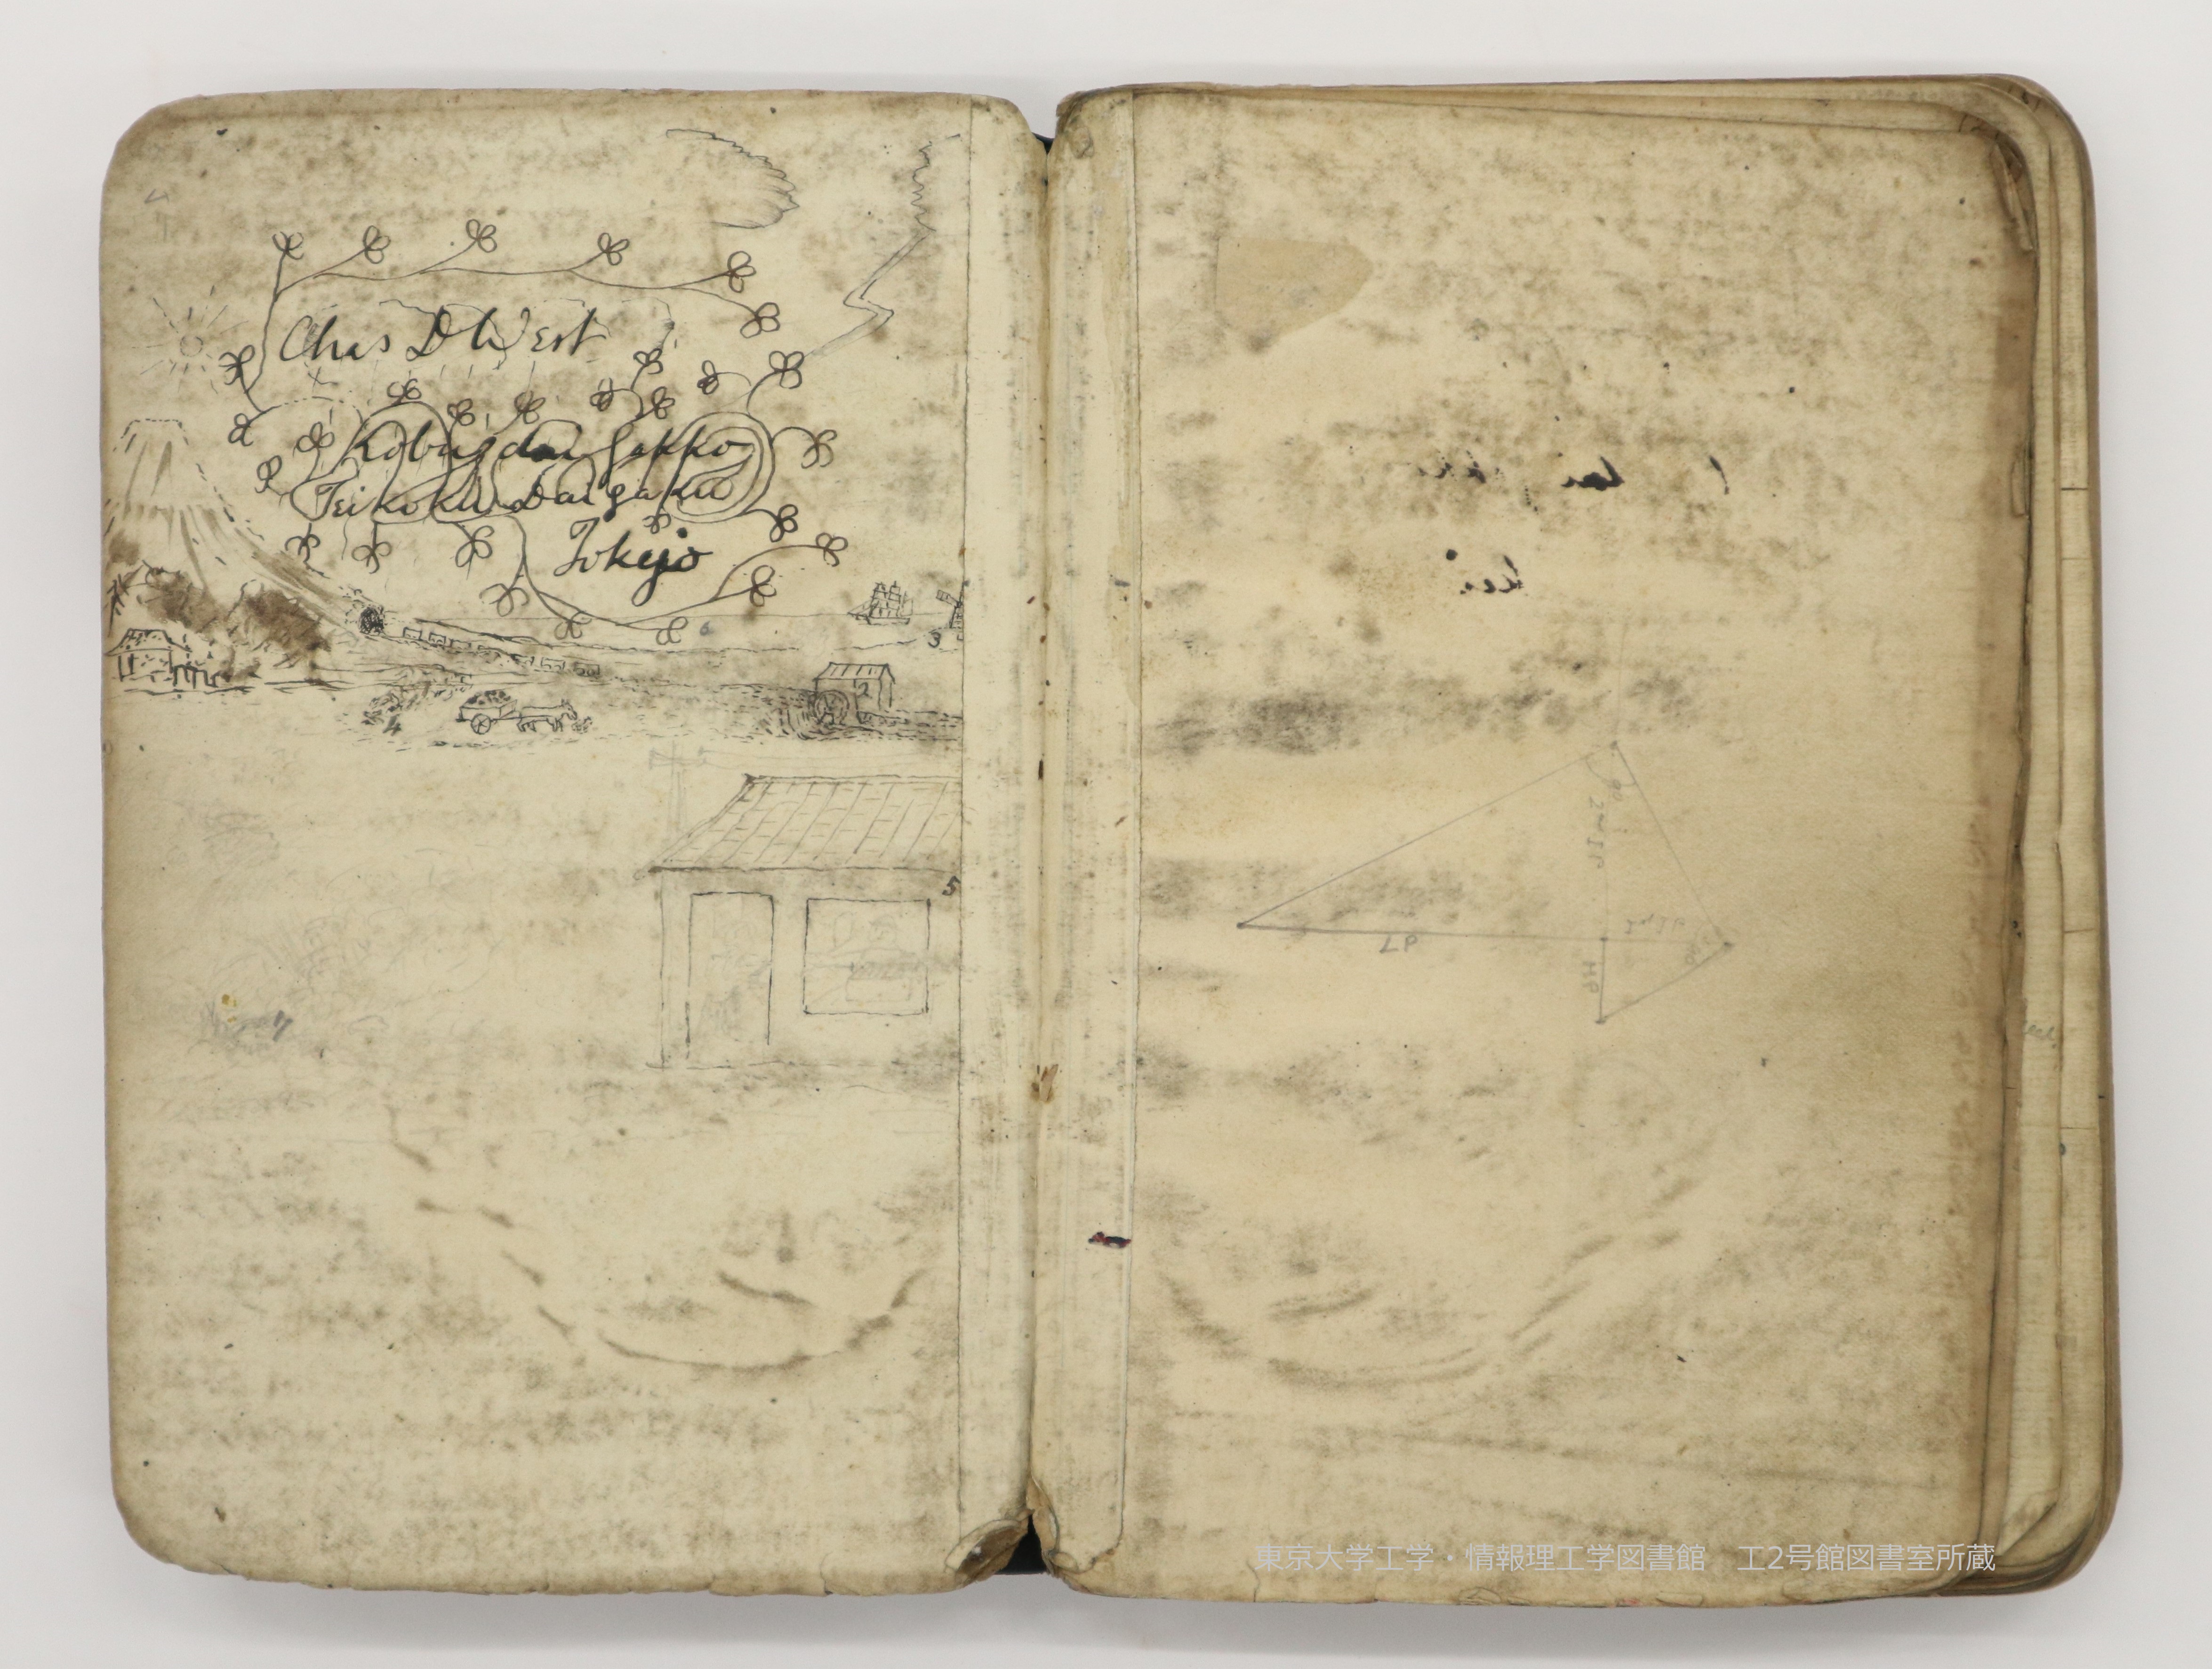 Chas D West
Kobu dai gakko
Teikoku Daigaku
Tokejo
3
2
4
5
7
東京大学工学・情報理工学図書館　工2号館図書室所蔵